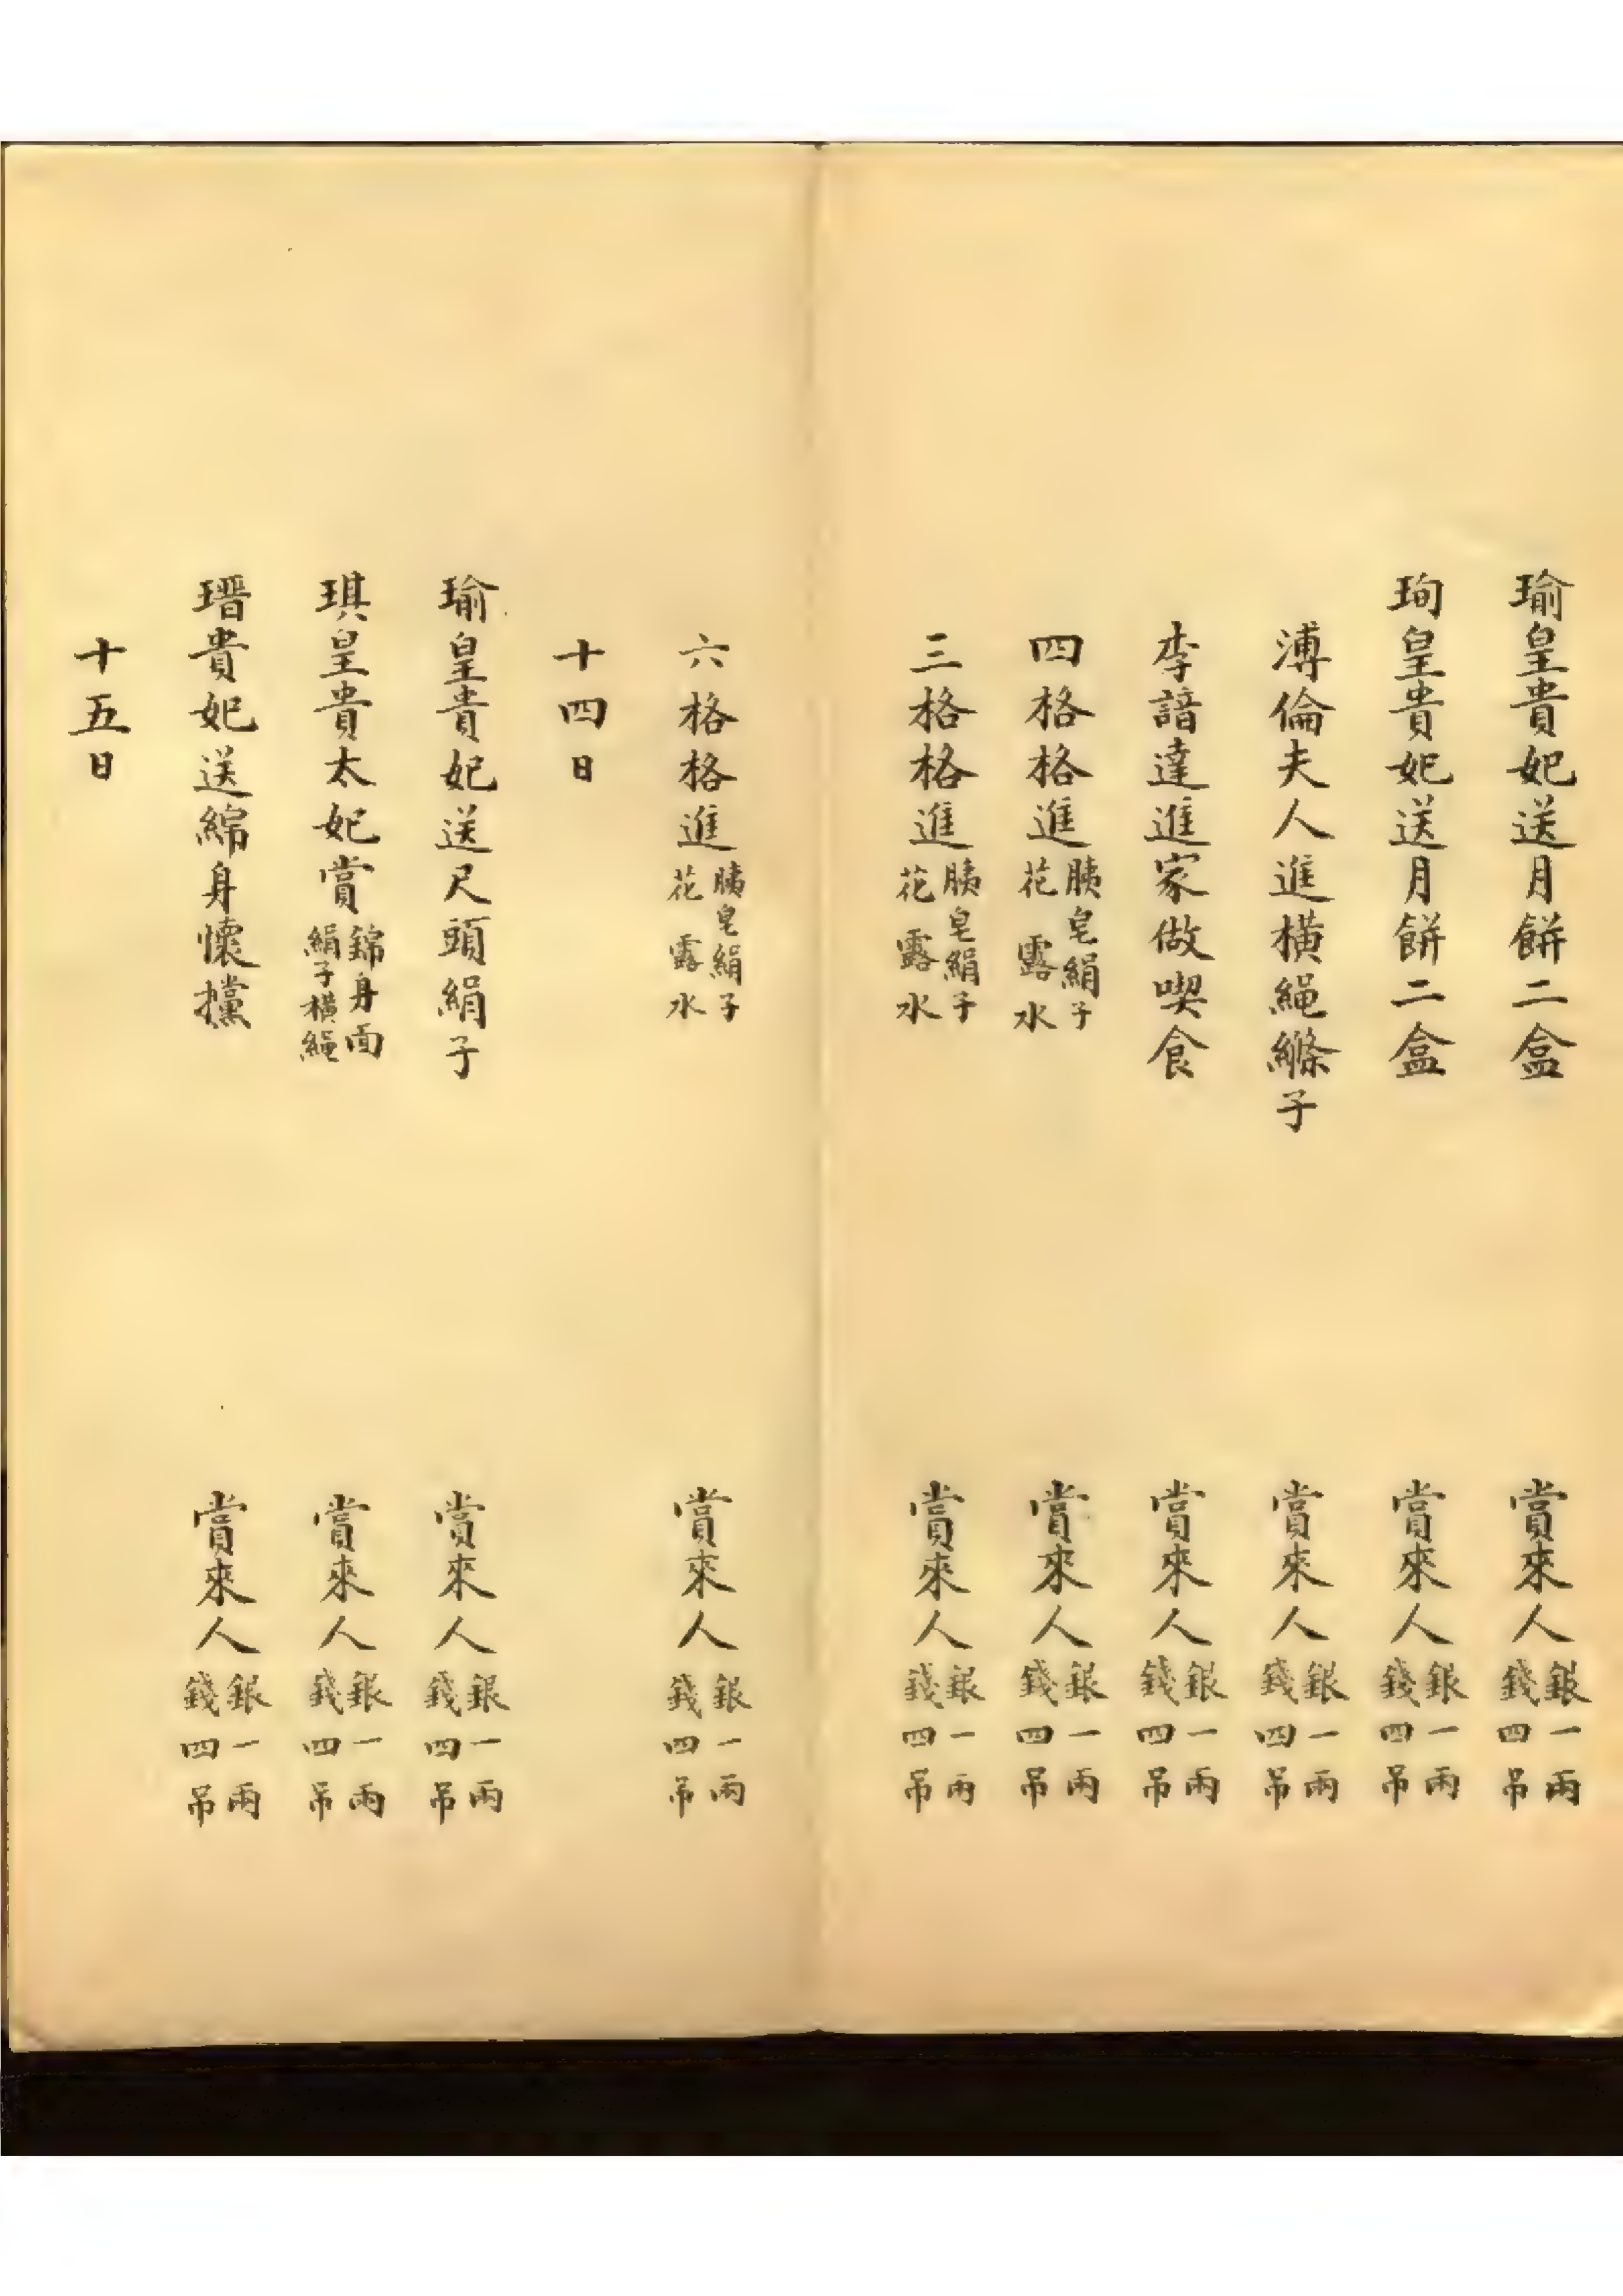 瑜皇貴妃送月餅二盒 賞來人銀一兩錢四吊
珣皇貴妃送月餅二盒 賞來人銀一兩錢四吊
溥倫夫人進橫繩縧子 賞來人銀一兩錢四吊
李諳達進家做喫食 賞來人銀一兩錢四吊
四格格進胰皂絹子花露水 賞來人銀一兩錢四吊
三格格進胰皂絹子花露水 賞來人銀一兩錢四吊
六格格進胰皂絹子花露水 賞來人銀一兩錢四吊
十四日
瑜皇貴妃送尺頭絹子 賞來人銀一兩錢四吊
琪皇貴太妃賞錦身面絹子橫繩 賞來人銀一兩錢四吊
瑨貴妃送綿身懷攩 賞來人銀一兩錢四吊
十五日